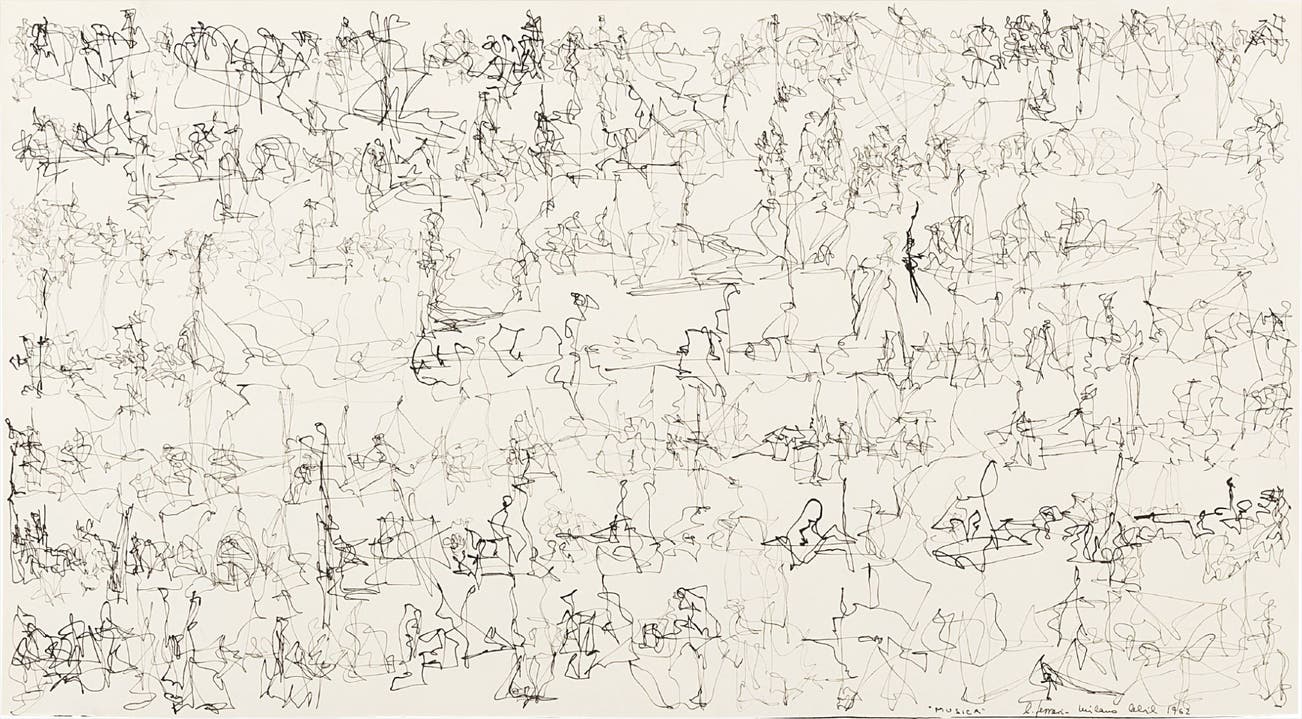 "MUSICA" L. Ferrari - milano Abril 1962